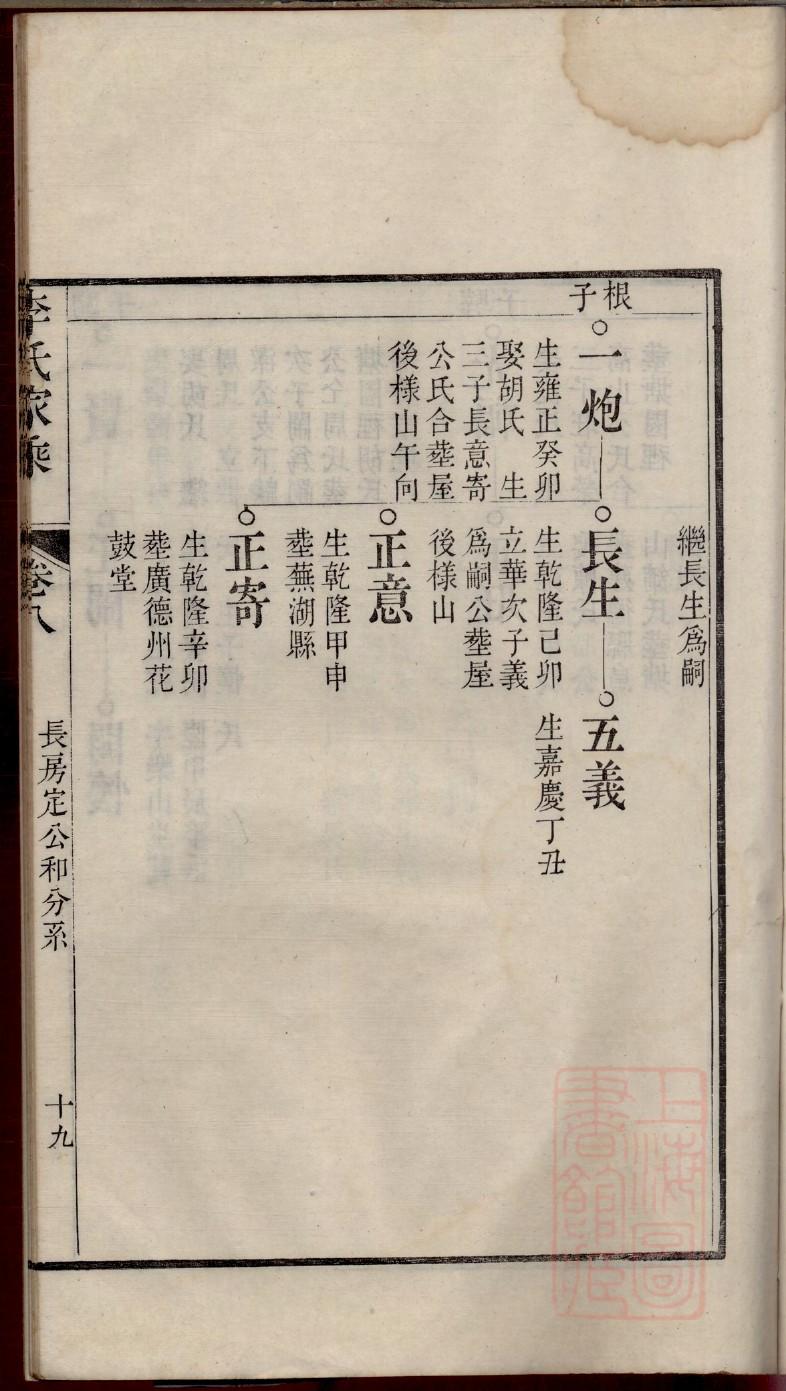 繼長生為嗣
根子
一炮
生雍正癸卯
娶胡氏 生
三子長意寄
公氏合塟屋
後樣山午向
長生
生乾隆己卯
立華次子義
為嗣公塟屋
後樣山
五義
生嘉慶丁丑
正意
生乾隆甲申
塟蕪湖縣
正寄
生乾隆辛卯
塟廣德州花
鼓堂
李氏家乘
卷八
長房定公和分系
十九
上海圖書館藏